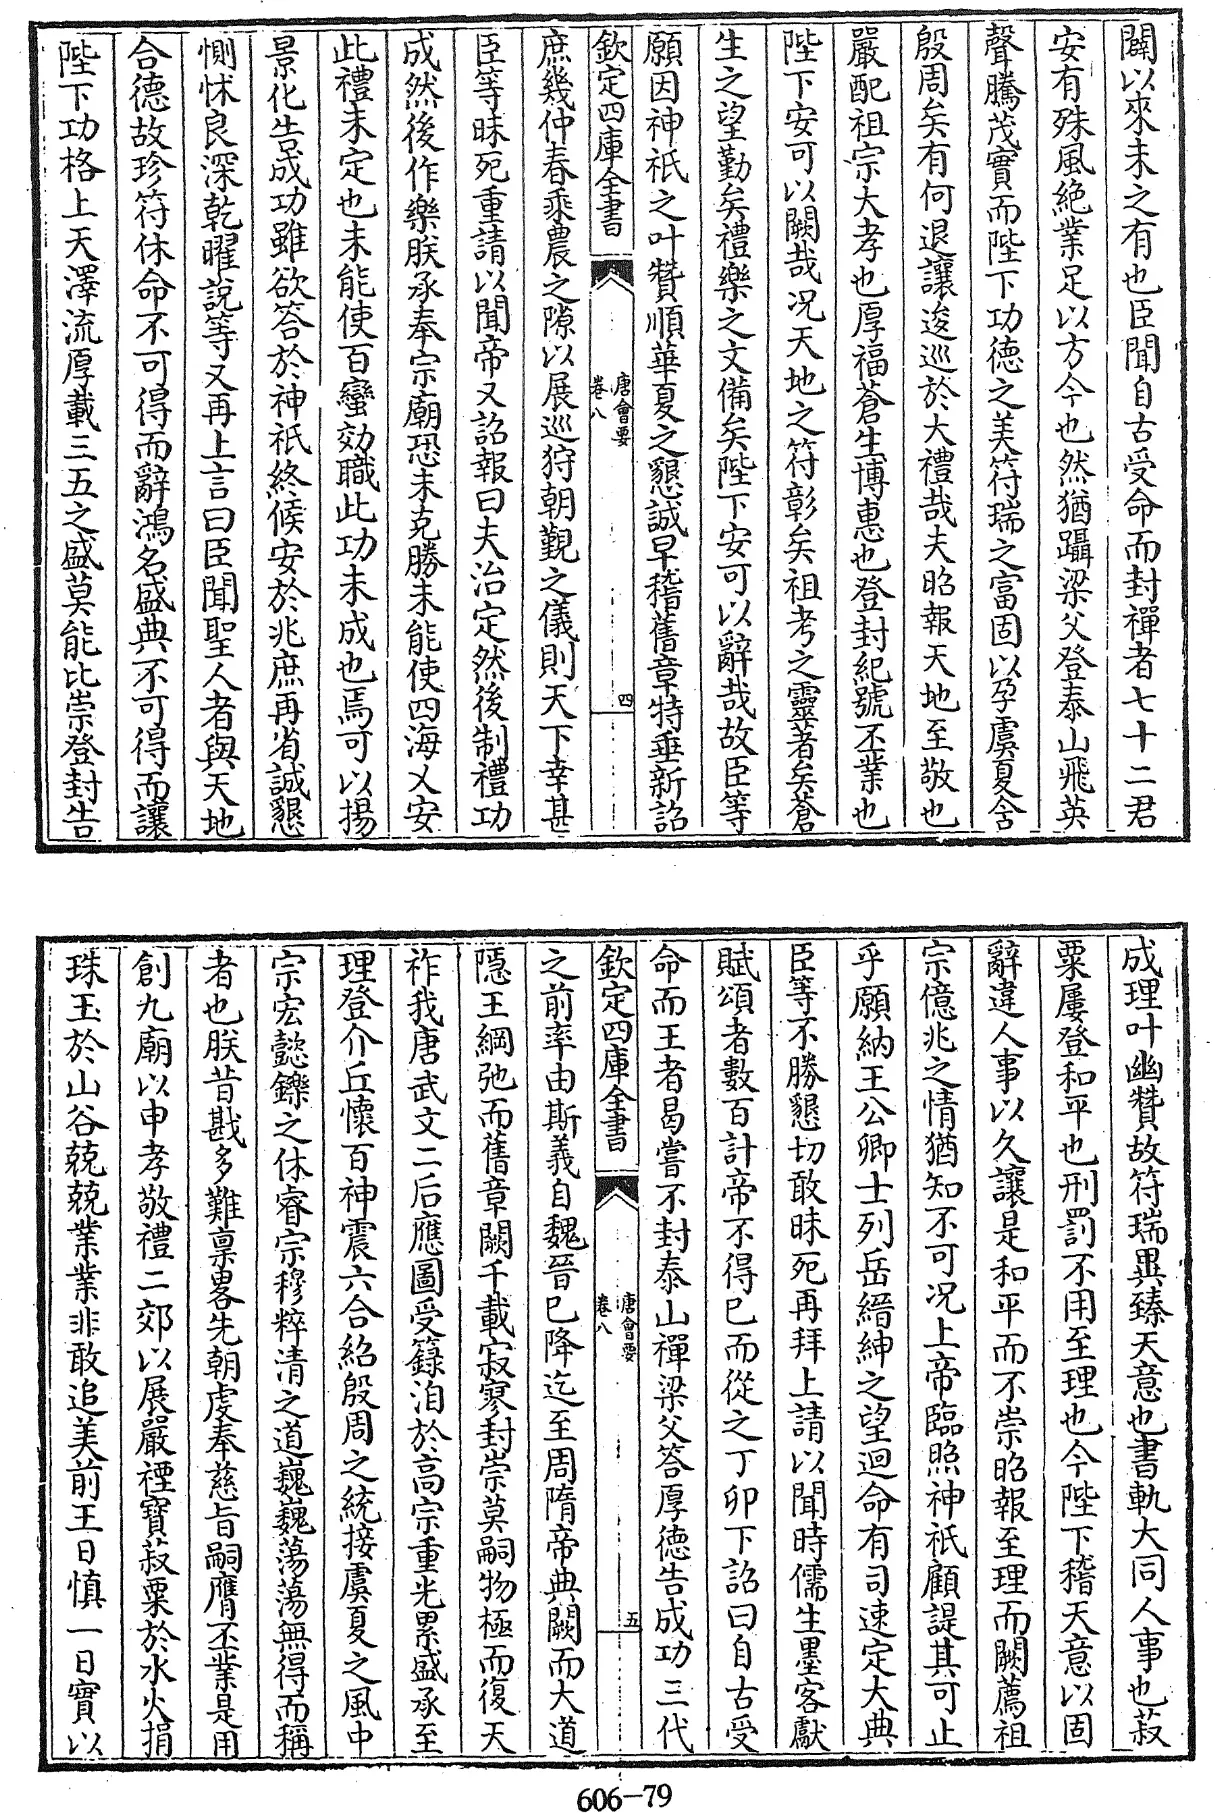 闢以來未之有也臣聞自古受命而封禪者七十二君
安有殊風絶業足以方今也然猶躡梁父登泰山飛英
聲騰茂實而陛下功德之美符瑞之富固以孕虞夏含
殷周矣有何退讓逡巡於大禮哉夫昭報天地至敬也
嚴配祖宗大孝也厚福蒼生博惠也登封紀號丕業也
陛下安可以闕哉况天地之符彰矣祖考之靈著矣蒼
生之望勤矣禮樂之文備矣陛下安可以辭哉故臣等
願因神祇之叶贊順華夏之懇誠早稽舊章特垂新詔
欽定四庫全書
唐會要
卷八
四
庶幾仲春乘農之隙以展巡狩朝覲之儀則天下幸甚
臣等昧死重請以聞帝又詔報曰夫治定然後制禮功
成然後作樂朕承奉宗廟恐未克勝未能使四海乂安
此禮未定也未能使百蠻効職此功未成也焉可以揚
景化告成功雖欲答於神祇終候安於兆庶再省誠懇
惻怵良深乾曜說等又再上言曰臣聞聖人者與天地
合德故珍符休命不可得而辭鴻名盛典不可得而讓
陛下功格上天澤流厚載三五之盛莫能比崇登封告
成理叶幽贊故符瑞畢臻天意也書軌大同人事也菽
粟屢登和平也刑罰不用至理也今陛下稽天意以固
辭違人事以久讓是和平而不崇昭報至理而闕薦祖
宗億兆之情猶知不可况上帝臨照神祇顧諟其可止
乎願納王公卿士列岳縉紳之望迴命有司速定大典
臣等不勝懇切敢昧死再拜上請以聞時儒生墨客獻
賦頌者數百計帝不得已而從之丁卯下詔曰自古受
命而王者曷嘗不封泰山禪梁父答厚德告成功三代
欽定四庫全書
唐會要
卷八
五
之前率由斯義自魏晉已降迄至周隋帝典闕而大道
隱王綱弛而舊章闕千載寂寥封崇莫嗣物極而復天
祚我唐武文二后應圖受籙洎於高宗重光累盛承至
理登介丘懷百神震六合紹殷周之統接虞夏之風中
宗宏懿鑠之休睿宗穆粹清之道巍巍蕩蕩無得而稱
者也朕昔戡多難稟畧先朝虔奉慈旨嗣膺丕業是用
創九廟以申孝敬禮二郊以展嚴禋寶菽粟於水火捐
珠玉於山谷兢兢業業非敢追美前王日慎一日實以
606-79